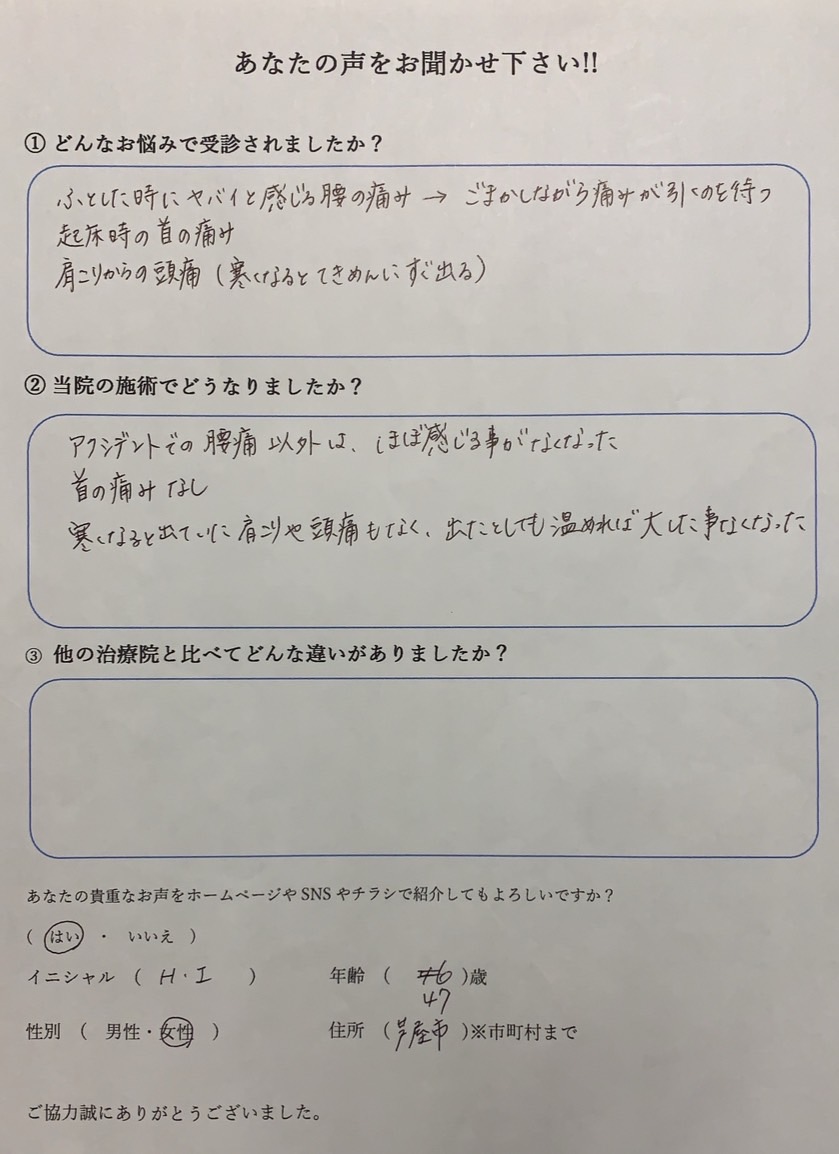 あなたの声をお聞かせ下さい!!
① どんなお悩みで受診されましたか？
ふとした時にヤバイと感じる腰の痛み → ごまかしながら痛みが引くのを待つ
起床時の首の痛み
肩こりからの頭痛（寒くなるとてきめんにすぐ出る）
② 当院の施術でどうなりましたか？
アクシデントでの腰痛以外は、ほぼ感じる事がなくなった
首の痛みなし
寒くなると出ていた肩こりや頭痛もなく、出たとしても温めれば大した事なくなった
③ 他の治療院と比べてどんな違いがありましたか？
あなたの貴重なお声をホームページやSNSやチラシで紹介してもよろしいですか？
（ はい ・ いいえ ）
イニシャル （ H・I ） 年齢 （ 46 ）歳
47
性別 （ 男性・女性 ） 住所 （芦屋市 ）※市町村まで
ご協力誠にありがとうございました。